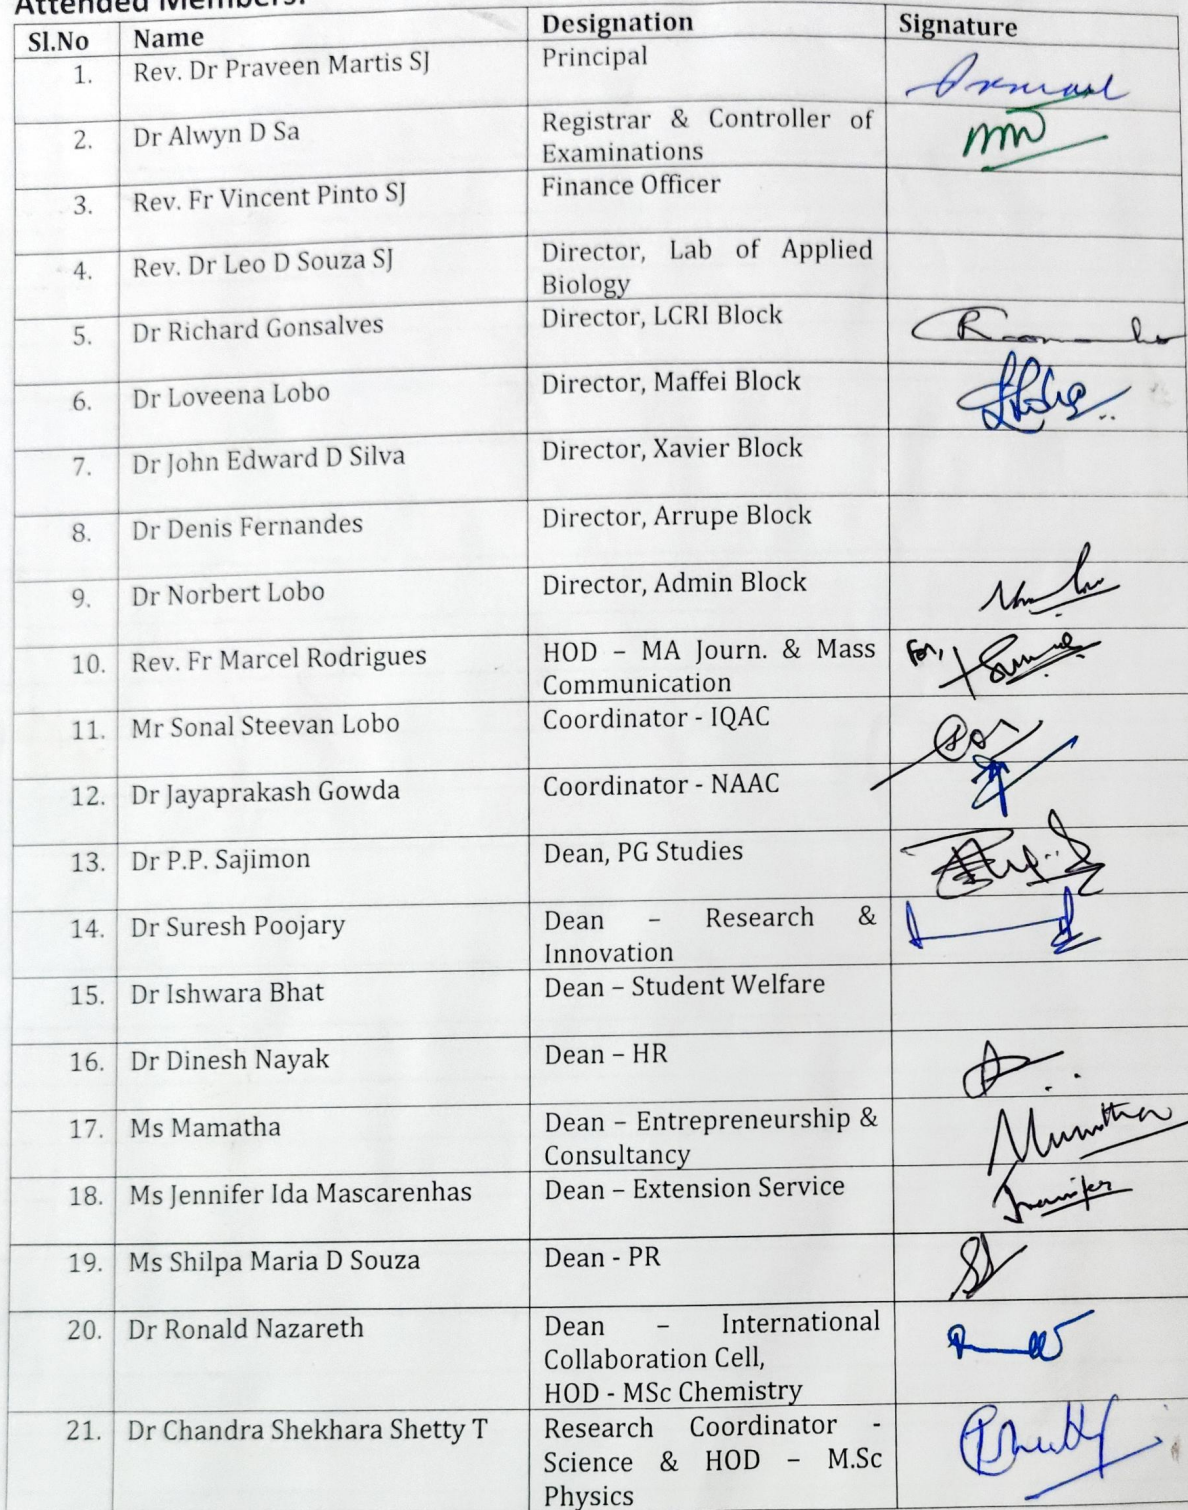 Attended Members:
Sl.No Name Designation Signature
1. Rev. Dr Praveen Martis SJ Principal
2. Dr Alwyn D Sa Registrar & Controller of
Examinations
3. Rev. Fr Vincent Pinto SJ Finance Officer
4. Rev. Dr Leo D Souza SJ Director, Lab of Applied
Biology
5. Dr Richard Gonsalves Director, LCRI Block
6. Dr Loveena Lobo Director, Maffei Block
7. Dr John Edward D Silva Director, Xavier Block
8. Dr Denis Fernandes Director, Arrupe Block
9. Dr Norbert Lobo Director, Admin Block
10. Rev. Fr Marcel Rodrigues HOD – MA Journ. & Mass For,
Communication
11. Mr Sonal Steevan Lobo Coordinator - IQAC
12. Dr Jayaprakash Gowda Coordinator - NAAC
13. Dr P.P. Sajimon Dean, PG Studies
14. Dr Suresh Poojary Dean – Research &
Innovation
15. Dr Ishwara Bhat Dean – Student Welfare
16. Dr Dinesh Nayak Dean – HR
17. Ms Mamatha Dean – Entrepreneurship &
Consultancy
18. Ms Jennifer Ida Mascarenhas Dean – Extension Service Jennifer
19. Ms Shilpa Maria D Souza Dean - PR
20. Dr Ronald Nazareth Dean – International
Collaboration Cell,
HOD - MSc Chemistry
21. Dr Chandra Shekhara Shetty T Research Coordinator -
Science & HOD – M.Sc
Physics